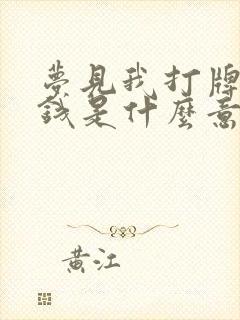 夢見我打牌
錢是什麼意
黃江